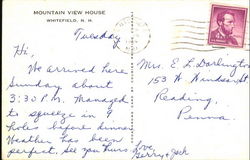 MOUNTAIN VIEW HOUSE
WHITEFIELD, N. H.
Tuesday
Hi,
We arrived here
Sunday about
3:30 P.M. Managed
to squeeze in 9
holes before dinner
Weather has been
perfect. See you Thurs.
Love,
Gerry & Jack
Mrs. E L Darlington
153 W. Windsor St
Reading,
Penna